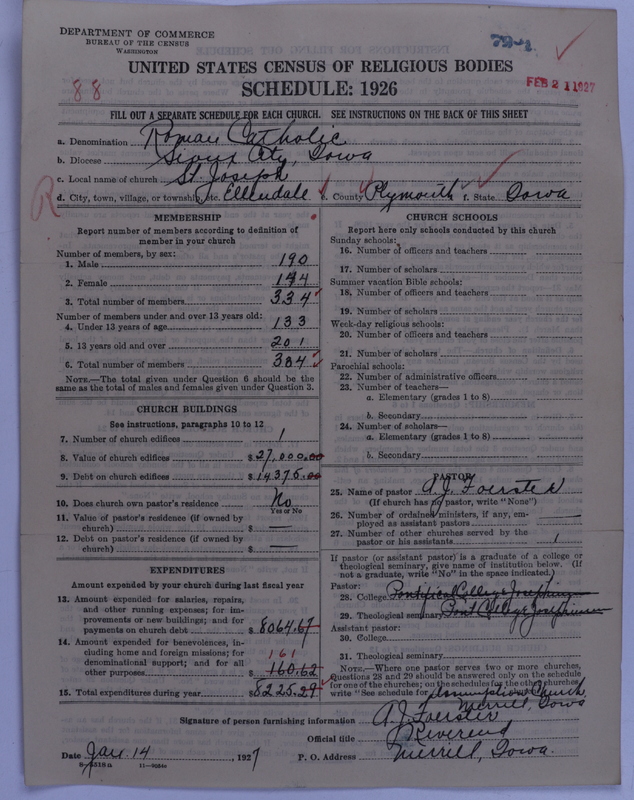 DEPARTMENT OF COMMERCE
BUREAU OF THE CENSUS
WASHINGTON
UNITED STATES CENSUS OF RELIGIOUS BODIES
SCHEDULE: 1926
88
FEB 21 1927
FILL OUT A SEPARATE SCHEDULE FOR EACH CHURCH. SEE INSTRUCTIONS ON THE BACK OF THIS SHEET
a. Denomination Roman Catholic
b. Diocese Sioux City, Iowa
c. Local name of church St Joseph
d. City, town, village, or township, etc. Ellendale e. County Plymouth f. State Iowa
R
MEMBERSHIP
Report number of members according to definition of
member in your church
Number of members, by sex:
1. Male 190
2. Female 144
3. Total number of members 334
Number of members under and over 13 years old:
4. Under 13 years of age 133
5. 13 years old and over 201
6. Total number of members 334
NOTE.—The total given under Question 6 should be
same as the total of males and females given under Question 3.
CHURCH BUILDINGS
See instructions, paragraphs 10 to 12
7. Number of church edifices 1
8. Value of church edifices $27,000.00
9. Debt on church edifices $14375.00
10. Does church own pastor's residence No
Yes or No
11. Value of pastor's residence (if owned by
church) $ —
12. Debt on pastor's residence (if owned by
church) $ —
EXPENDITURES
Amount expended by your church during last fiscal year
13. Amount expended for salaries, repairs,
and other running expenses; for im-
provements or new buildings; and for
payments on church debt $8064.67
14. Amount expended for benevolences, in-
cluding home and foreign missions; for
denominational support; and for all
other purposes $160.62
161
15. Total expenditures during year $8225.29
CHURCH SCHOOLS
Report here only schools conducted by this church
Sunday schools:
16. Number of officers and teachers
17. Number of scholars
Summer vacation Bible schools:
18. Number of officers and teachers
19. Number of scholars
Week-day religious schools:
20. Number of officers and teachers
21. Number of scholars
Parochial schools:
22. Number of administrative officers
23. Number of teachers—
a. Elementary (grades 1 to 8)
b. Secondary
24. Number of scholars—
a. Elementary (grades 1 to 8)
b. Secondary
PASTOR
25. Name of pastor A. J. Foerster
(If church has no pastor, write "None")
26. Number of ordained ministers, if any, em-
ployed as assistant pastors —
27. Number of other churches served by the
pastor or his assistants 1
If pastor (or assistant pastor) is a graduate of a college or
theological seminary, give name of institution below. (If
not a graduate, write "No" in the space indicated.)
Pastor:
28. College Pontifical College Josephinum
29. Theological seminary Pont College Josephinum
Assistant pastor:
30. College
31. Theological seminary
NOTE.—Where one pastor serves two or more churches,
Questions 28 and 29 should be answered only on the schedule
for one of the churches; on the schedules for the other churches,
write "See schedule for Assumption Church,
Merrill, Iowa
Signature of person furnishing information A. J. Foerster
Official title Reverend
Date Jan. 14, 1927 P. O. Address Merrill, Iowa.
8—5518a 11—